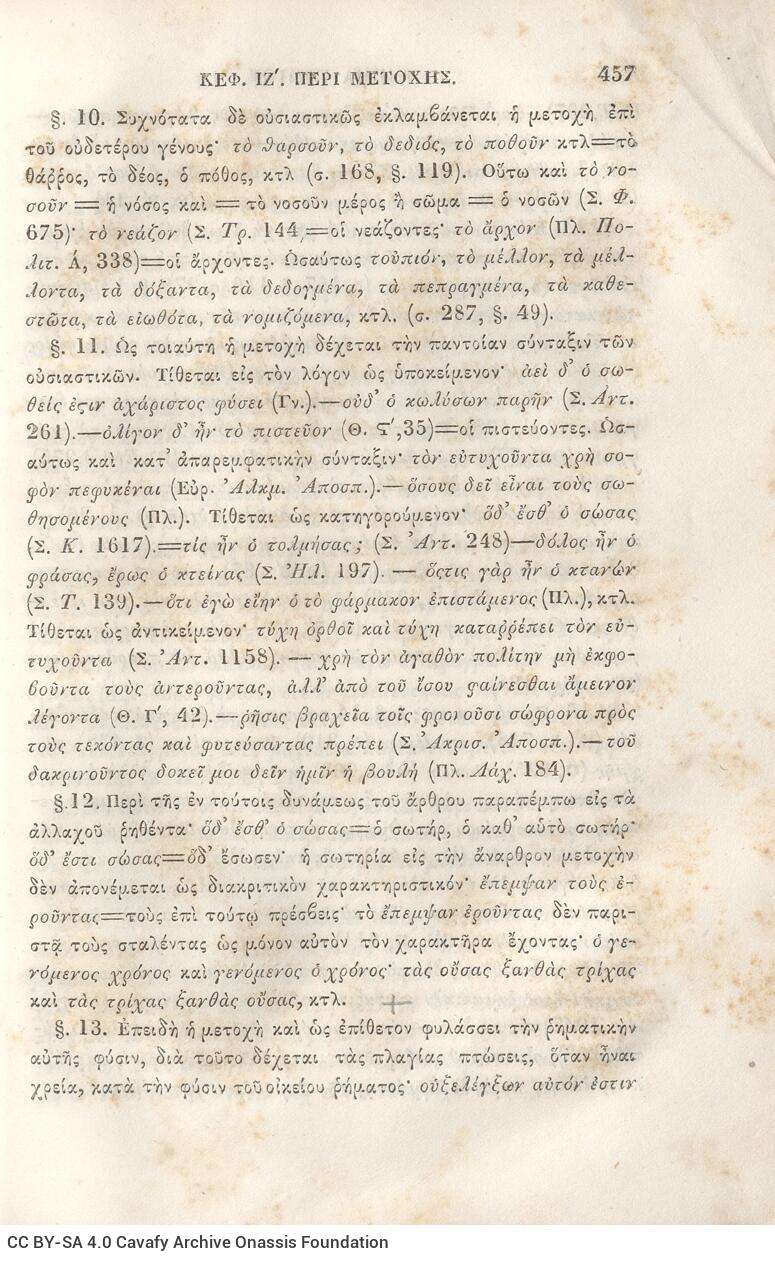 ΚΕΦ. ΙΖ′. ΠΕΡΙ ΜΕΤΟΧΗΣ. 457
§. 10. Συχνότατα δὲ οὐσιαστικῶς ἐκλαμβάνεται ἡ μετοχὴ ἐπὶ
τοῦ οὐδετέρου γένους· τὸ θαρσοῦν, τὸ δεδιός, τὸ ποθοῦν κτλ=τὸ
θάῤῥος, τὸ δέος, ὁ πόθος, κτλ (σ. 168, §. 119). Οὕτω καὶ τὸ νο-
σοῦν = ἡ νόσος καὶ = τὸ νοσοῦν μέρος ἢ σῶμα = ὁ νοσῶν (Σ. Φ.
675)· τὸ νεάζον (Σ. Τρ. 144,=οἱ νεάζοντες· τὸ ἄρχον (Πλ. Πο-
λιτ. Ά, 338)=οἱ ἄρχοντες. Ὡσαύτως τοὐπιόν, τὸ μέλλον, τὰ μέλ-
λοντα, τὰ δόξαντα, τὰ δεδογμένα, τὰ πεπραγμένα, τὰ καθε-
στῶτα, τὰ εἰωθότα, τὰ νομιζόμενα, κτλ. (σ. 287, §. 49).
§. 11. Ὡς τοιαύτη ἡ μετοχὴ δέχεται τὴν παντοίαν σύνταξιν τῶν
οὐσιαστικῶν. Τίθεται εἰς τὸν λόγον ὡς ὑποκείμενον· ἀεὶ δ' ὁ σω-
θείς ἐςιν ἀχάριστος φύσει (Γν.).—οὐδ' ὁ κωλύσων παρῆν (Σ. Ἀντ.
261).—ὀλίγον δ' ἦν τὸ πιστεῦον (Θ. Ϛ′,35)=οἱ πιστεύοντες. Ὡσ-
αύτως καὶ κατ' ἀπαρεμφατικὴν σύνταξιν· τὸν εὐτυχοῦντα χρὴ σο-
φὸν πεφυκέναι (Εὐρ. Ἀλκμ. Ἀποσπ.).—ὅσους δεῖ εἶναι τοὺς σω-
θησομένους (Πλ.). Τίθεται ὡς κατηγορούμενον· ὅδ' ἔσθ' ὁ σώσας
(Σ. Κ. 1617).=τίς ἦν ὁ τολμήσας; (Σ. Ἀντ. 248)—δόλος ἦν ὁ
φράσας, ἔρως ὁ κτείνας (Σ. Ἠλ. 197). — ὅςτις γὰρ ἦν ὁ κτανών
(Σ. Τ. 139).—ὅτι ἐγὼ εἴην ὁ τὸ φάρμακον ἐπιστάμενος (Πλ.), κτλ.
Τίθεται ὡς ἀντικείμενον· τύχη ὀρθοῖ καὶ τύχη καταῤῥέπει τὸν εὐ-
τυχοῦντα (Σ. Ἀντ. 1158). — χρὴ τὸν ἀγαθὸν πολίτην μὴ ἐκφο-
βοῦντα τοὺς ἀντεροῦντας, ἀλλ' ἀπὸ τοῦ ἴσου φαίνεσθαι ἄμεινον
λέγοντα (Θ. Γ′, 42).—ῥῆσις βραχεῖα τοῖς φρονοῦσι σώφρονα πρὸς
τοὺς τεκόντας καὶ φυτεύσαντας πρέπει (Σ. Ἀκρισ. Ἀποσπ.).—τοῦ
διακρινοῦντος δοκεῖ μοι δεῖν ἡμῖν ἡ βουλή (Πλ. Λάχ. 184).
§.12. Περὶ τῆς ἐν τούτοις δυνάμεως τοῦ ἄρθρου παραπέμπω εἰς τὰ
ἀλλαχοῦ ῥηθέντα· ὅδ' ἔσθ' ὁ σώσας=ὁ σωτήρ, ὁ καθ' αὐτὸ σωτήρ·
ὅδ' ἔστι σώσας=ὅδ' ἔσωσεν· ἡ σωτηρία εἰς τὴν ἄναρθρον μετοχὴν
δὲν ἀπονέμεται ὡς διακριτικὸν χαρακτηριστικόν· ἔπεμψαν τοὺς ἐ-
ροῦντας=τοὺς ἐπὶ τούτῳ πρέσβεις· τὸ ἔπεμψαν ἐροῦντας δὲν παρι-
στᾷ τοὺς σταλέντας ὡς μόνον αὐτὸν τὸν χαρακτῆρα ἔχοντας· ὁ γε-
νόμενος χρόνος καὶ γενόμενος ὁ χρόνος· τὰς οὔσας ξανθὰς τρίχας
καὶ τὰς τρίχας ξανθὰς οὔσας, κτλ.
§. 13. Ἐπειδὴ ἡ μετοχὴ καὶ ὡς ἐπίθετον φυλάσσει τὴν ῥηματικὴν
αὐτῆς φύσιν, διὰ τοῦτο δέχεται τὰς πλαγίας πτώσεις, ὅταν ᾖναι
χρεία, κατὰ τὴν φύσιν τοῦ οἰκείου ῥήματος· οὑξελέγξων αὐτόν ἐστιν
CC BY-SA 4.0 Cavafy Archive Onassis Foundation